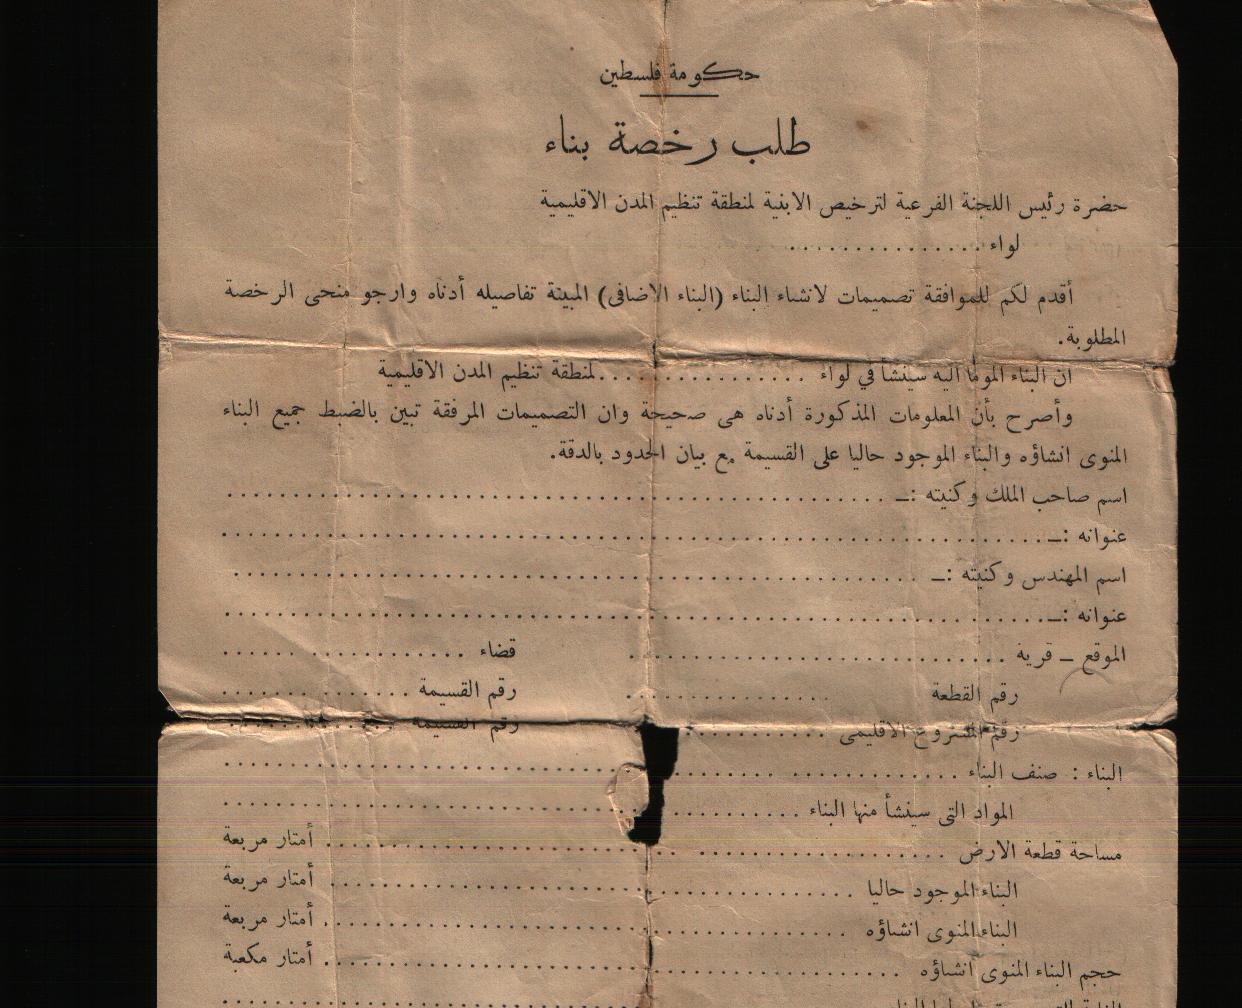 حكومة فلسطين
طلب رخصة بناء
حضرة رئيس اللجنة الفرعية لترخيص الابنية لمنطقة تنظيم المدن الاقليمية
لواء ..................
أقدم لكم للموافقة تصميمات لانشاء البناء (البناء الاضافى) المبينة تفاصيله أدناه وارجو منحى الرخصة
المطلوبة.
ان البناء الموما اليه سينشأ في لواء ..................لمنطقة تنظيم المدن الاقليمية
وأصرح بأن المعلومات المذكورة أدناه هى صحيحة وان التصميمات المرفقة تبين بالضبط جميع البناء
المنوى انشاؤه والبناء الموجود حاليا على القسيمة مع بيان الحدود بالدقة.
اسم صاحب الملك وكنيته :ـ ..................
عنوانه :ـ ..................
اسم المهندس وكنيته :ـ ..................
عنوانه :ـ ..................
الموقع ـ قرية .................. قضاء ..................
رقم القطعة .................. رقم القسيمة ..................
رقم المشروع الاقليمى .................. رقم القسيمة ..................
البناء : صنف البناء ..................
المواد التى سينشأ منها البناء ..................
مساحة قطعة الارض .................. أمتار مربعة
البناء الموجود حاليا .................. أمتار مربعة
البناء المنوى انشاؤه .................. أمتار مربعة
حجم البناء المنوى انشاؤه .................. أمتار مكعبة